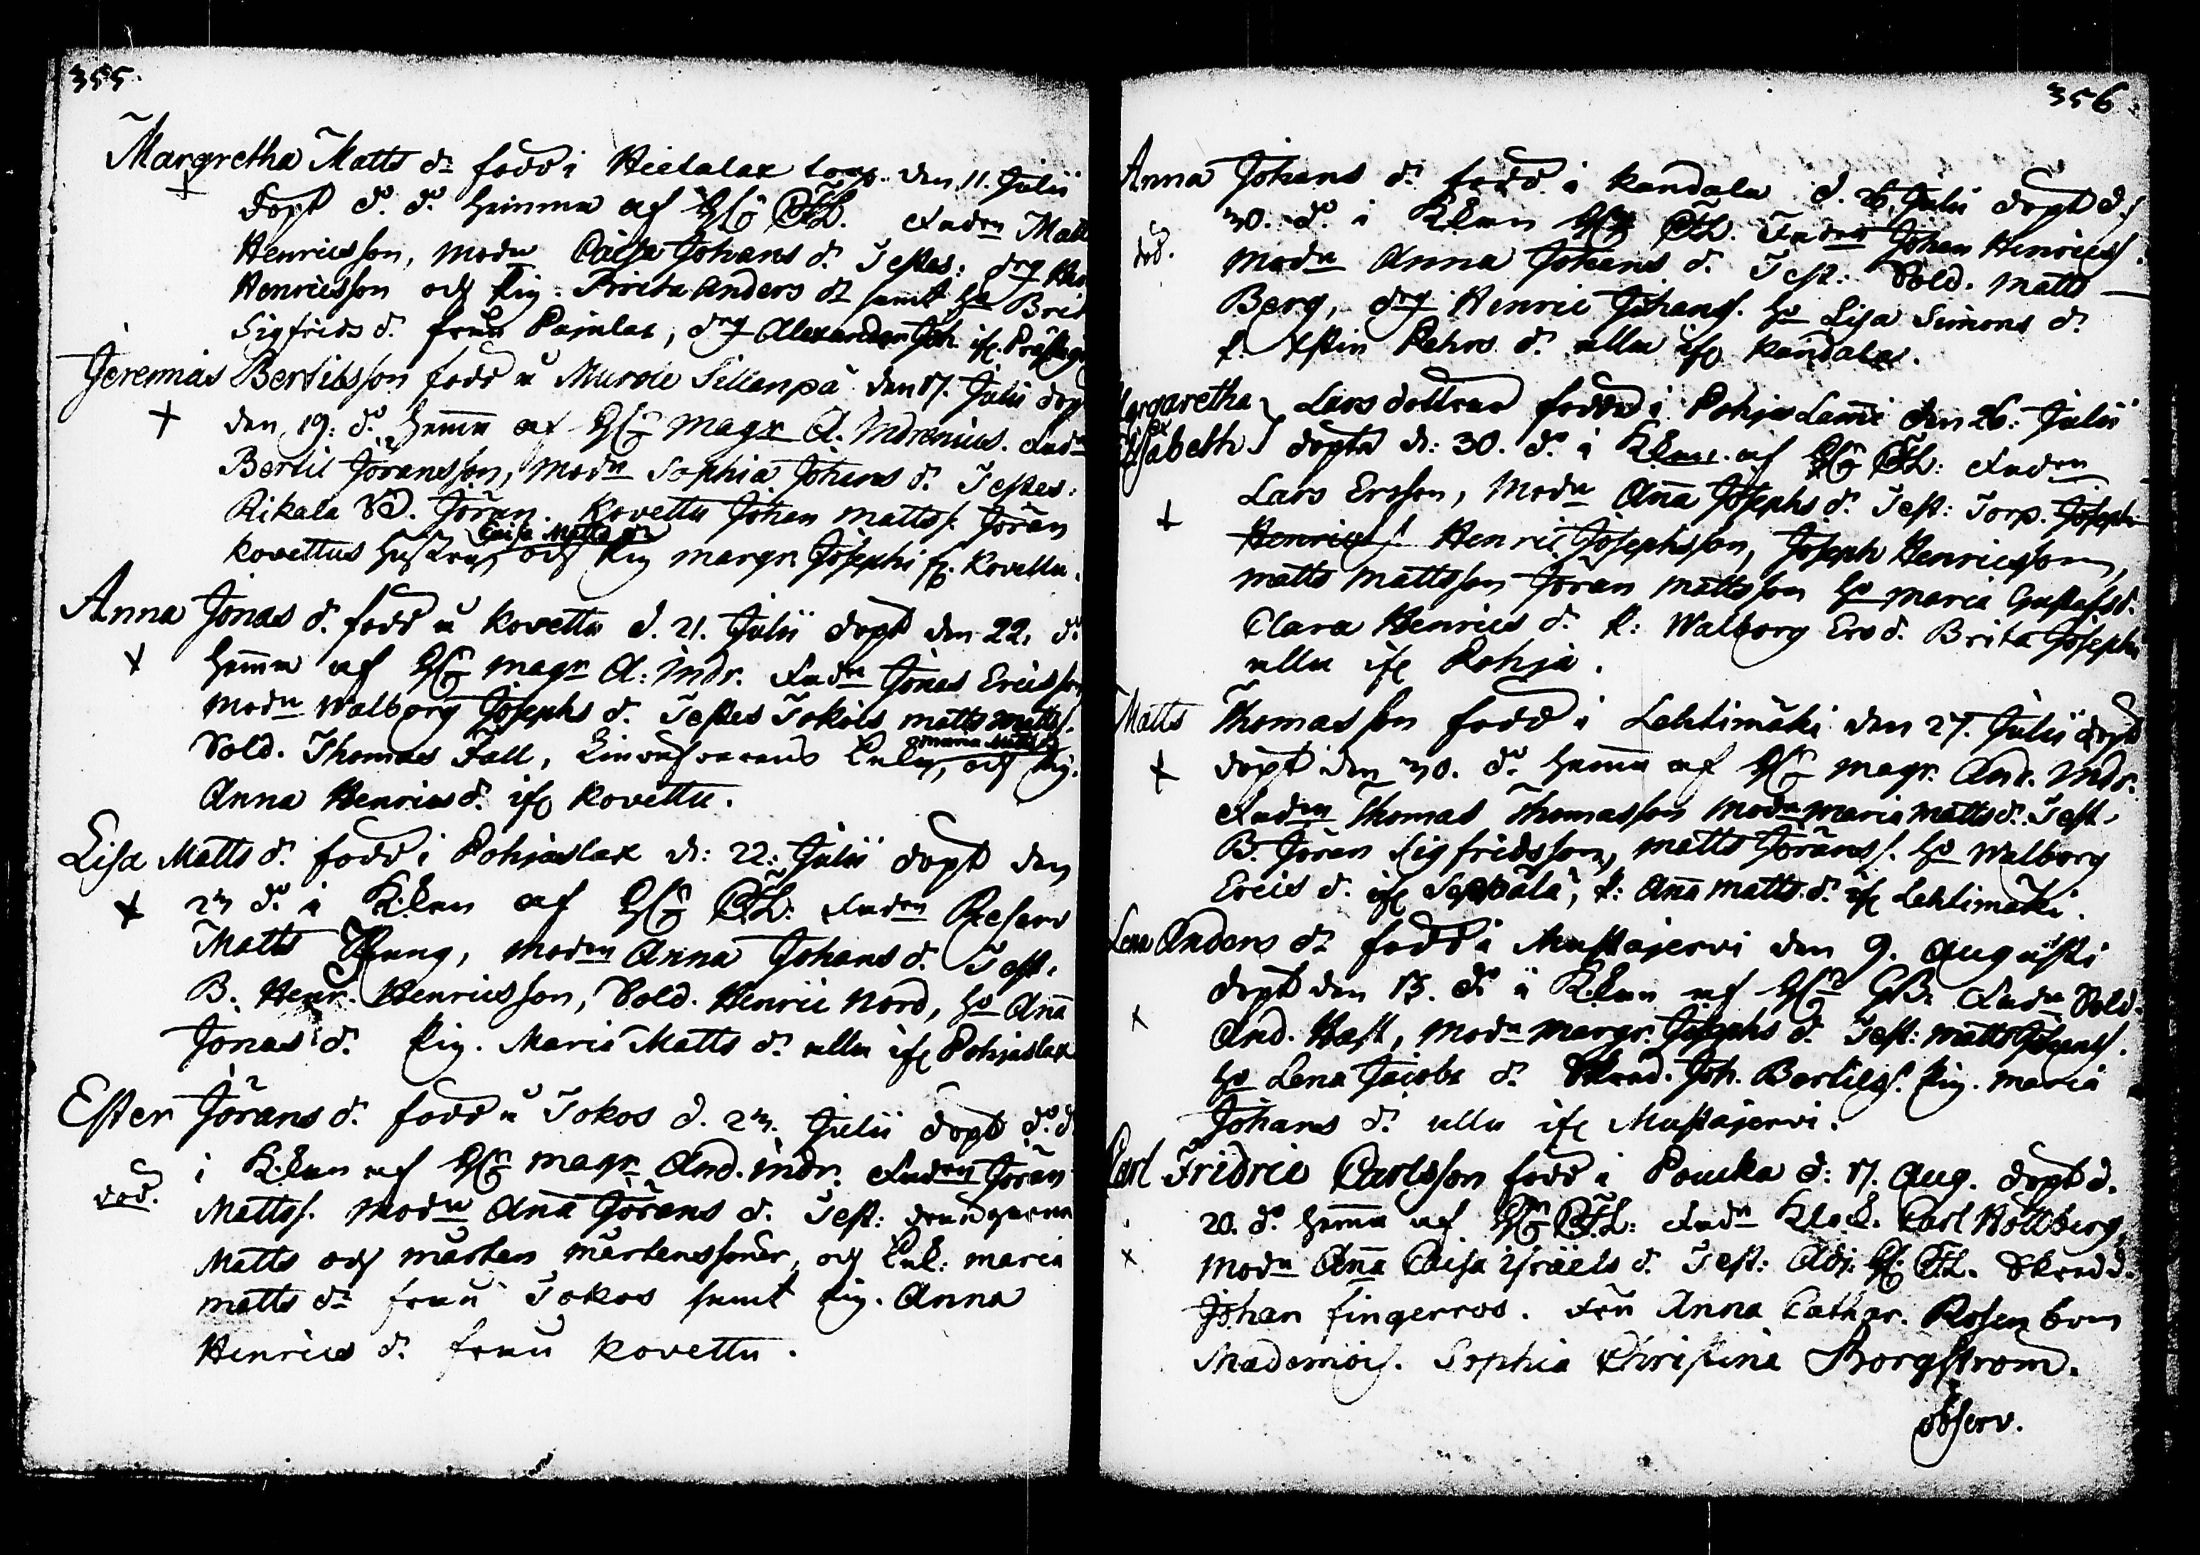 355.
Margretha Matts dr född i Hietalax torp. den 11. Julii
döpt d. do hemma af HG CFL. Fadren Matts
Henricsson, modn Caisa Johans dr Testes: drg
Henricsson och pig. Brita Anders dr samt ho Brit
Sigfrids dr från Pajulax, drg Alexander Joh. ifr Prästgå
Jeremias Bertilsson född å Murole Sillanpä den 17. Julii döpt
den 19. do hemma af HG Magr A. Indrenius. Fadn
Bertil Jöransson, modn Sophia Johans dr Testes:
Rikala Jöran. Kovettu Johan Mattss. Jöran
Caisa Matts dr
Kovettus hustru, och pig Margr. Josephs fr. Kovettu.
Anna Jonas dr född å Kovettu d. 21. Julii döpt den 22. do
hemma af HG Magr A. Indr. Fadn Jonas Ericsson
modn Walborg Josephs dr Testes Jokois Matts Mattss.
Maria Matts dr
Sold. Thomas Fall, och pig.
Anna Henrics dr ifr Kovettu.
Lisa Matts dr född i Pohjaslax d: 22: Julii döpt den
23 do i K:kan af HG CFL: Fadren Reserv
Matts Kung, modren Anna Johans dr Test.
B. Henr. Henricsson, Sold. Henric Nord, ho Anna
Jonas dr pig. Maria Matts dr alla ifr Pohjaslax
Ester Jörans dr född å Jokos d. 23. Julii döpt do d
i K:kan af HG Magr And. Indr. Fadren Jöran
död.
Mattss. modn Ana Jörans dr Test: drängarna
Matts och Mårten Mårtenssöner, och Enk: Maria
Matts dr från Jokos samt pig. Anna
Henrics dr från Kovettu.
356.
Anna Johans dr född i Kandala d. 26. Julii döpt d.
30. do i K:kan HG CFL. Fadren Johan Henricss.
död.
modn Anna Johans dr Test: Sold. Matts
Berg, drg Henric Johanss. ho Lisa Simons dr
p. Kstin Pehrs dr alla ifr Kandala.
Margaretha Lars dottrar födde i Pohjas Lami den 26: Julii
Elisabeth döpta d: 30. do i K:kan af HG CFL: Fadren
Lars Ersson, Modn Ana Josephs dr Test: Torp. Joseph
Henrics Henric Josephsson, Joseph Henricsson,
Matts Mattsson Jöran Mattsson ho Maria Gustafs d.
Clara Henrics dr p: Walborg Ers d. Brita Josephs
alla ifr Pohja.
Matts Thomasson född i Lehtimäki den 27. Julii döpt
döpt den 30. do hemma af HG Magr. And. Indr.
Fadren Thomas Thomasson modn Maria Matts dr Test.
B. Jöran Sigfridsson, Matts Jöranss. ho Walborg
Erics dr ifr Seppälä, p: Ana Matts dr ifr Lehtimäki.
Lena Anders dr född i Mustajervi den 9. Augusti
döpt den 13. do i K:kan af HG GB. Fadn Sold.
And. Hast, modn Margr. Josephs dr Test: Matts Johanss.
ho Lena Jacobs dr Skred. Joh. Bertilss. pig. Maria
Johans dr alla ifr Mustajervi.
Carl Fridric Carlsson född i Pouka d: 17. Aug. döpt d.
20. do hemma af HG CFL: Fadn Klock. Carl Hollberg,
modn Ana Caisa Israels dr Test: Adj. CFL. Skredd.
Johan Fingerros. Fru Anna Cathar. Rosenbom
Mademois. Sophia Christina Borgström.
observ.